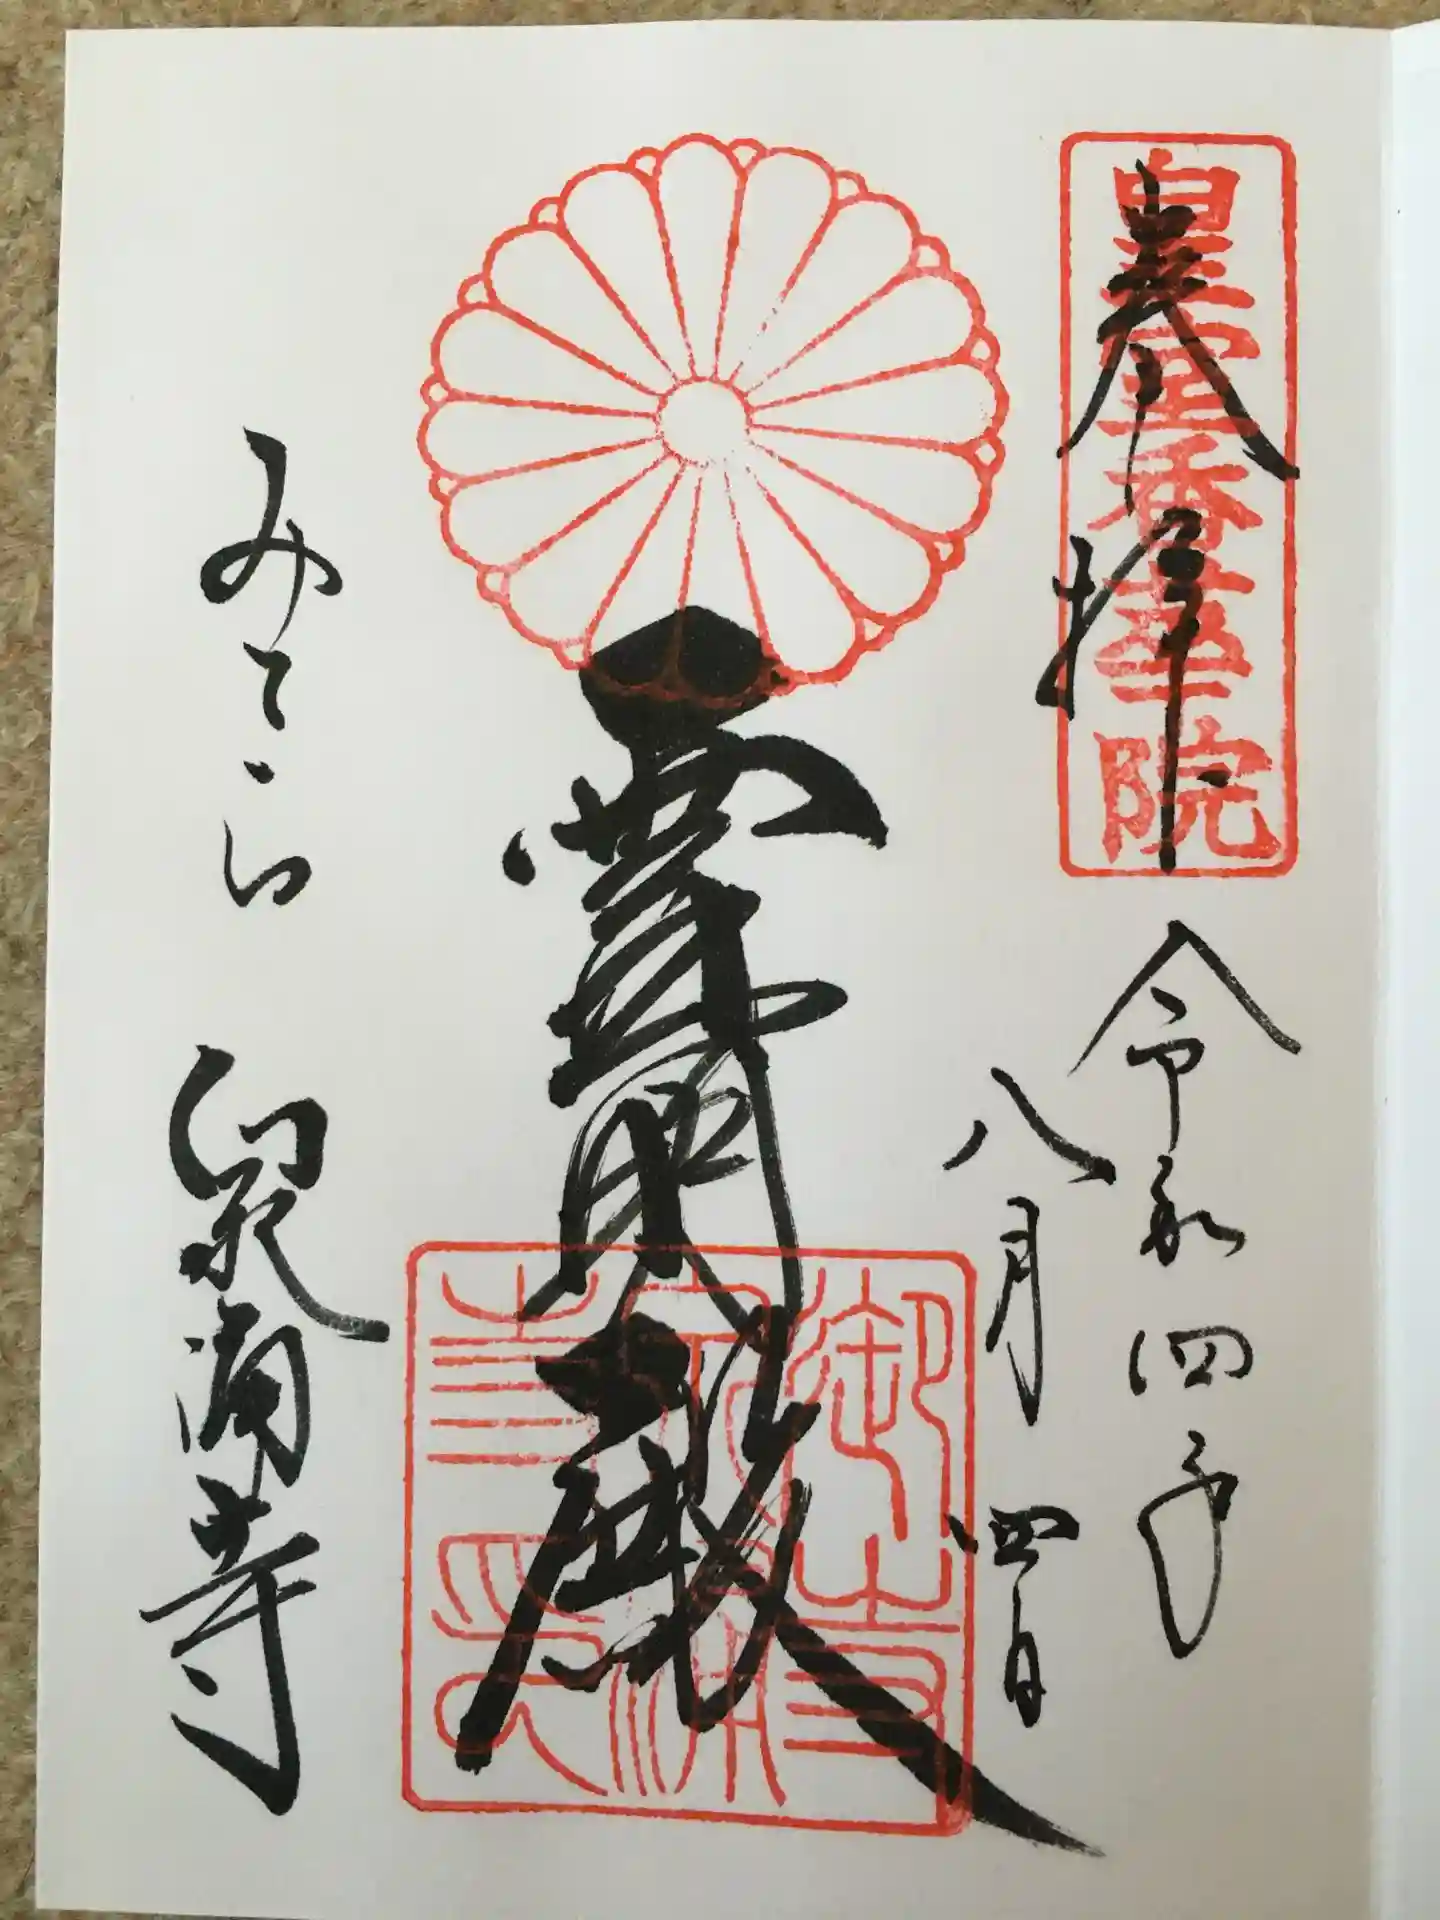 奉拝
皇室香華院
令和四年
八月四日
霊明殿
みてら
泉涌寺